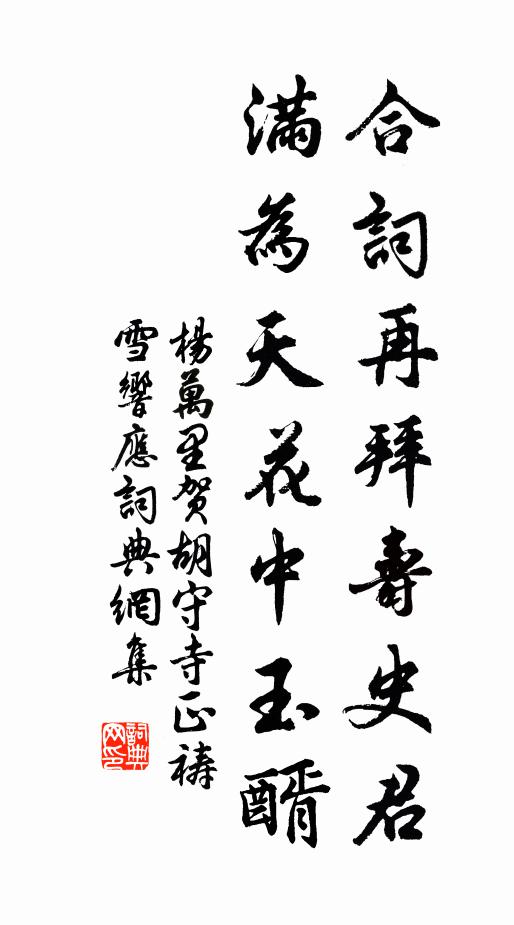 合詞再拜壽史君
滿為天花中玉醑
楊萬里賀胡守寺正禱
雪響應詞典網集
詞典網印